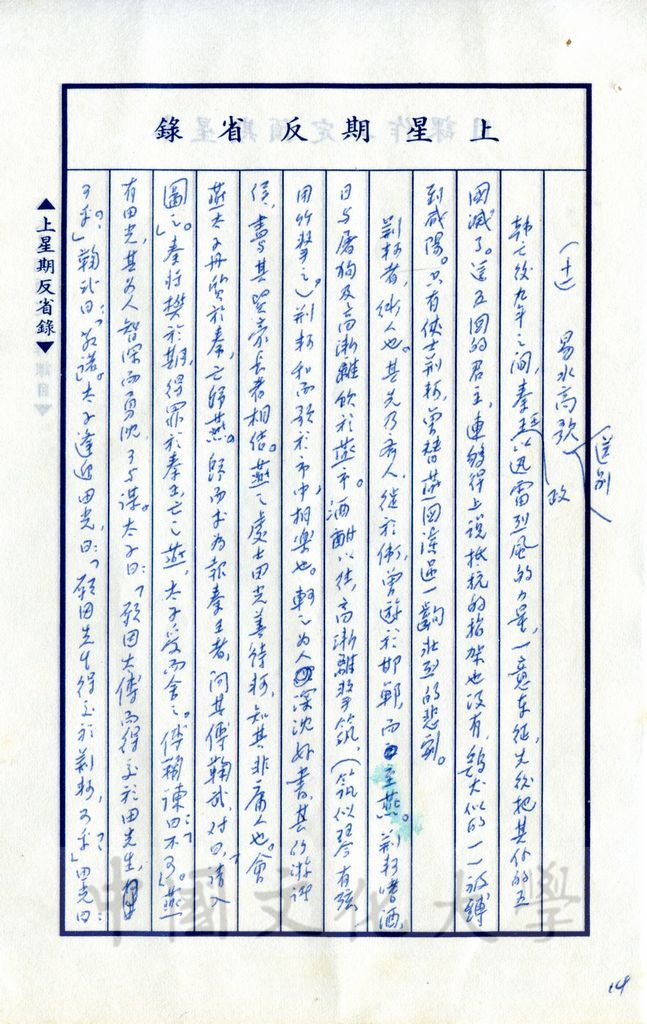 上星期反省錄
(十一) 易水高歌
送別
韓亡後九年之間，秦政以迅雷烈風的力量，一意東征，先後把其他的五
國滅了。這五國的君主，連夠得上說抵抗的招架也沒有，鷄犬似的一一被縛
到咸陽。只有俠士荊軻，曾替燕國演過一齣壯烈的悲劇。
荊軻者，衛人也。其先乃齊人，徙於衛，曾遊於邯鄲，而至燕。荊軻嗜酒，
日與屠狗及高漸離飲於燕市。酒酣以往，高漸離擊筑，(筑似琴有弦，
用竹擊之)荊軻和而歌於市中，相樂也。軻之為人深沈好書，其所游諸
侯，盡與其賢豪長者相結。燕之處士田光善待軻，知其非庸人也。會
燕太子丹質於秦，亡歸燕。歸而求為報秦王者，問其傅鞠武，對曰，請入
圖之。秦將樊於期，得罪於秦王，亡之燕，太子受而舍之。傅鞠諫曰不可。燕
有田光，其為人智深而勇沈，可與謀。太子曰：「願因太傅而得交於田先生，
可乎？」鞠武曰：敬諾。太子逢迎田光，曰：「願因先生得交於荊軻，可乎？」田光曰：
▲上星期反省錄▼
中國文化大學
14